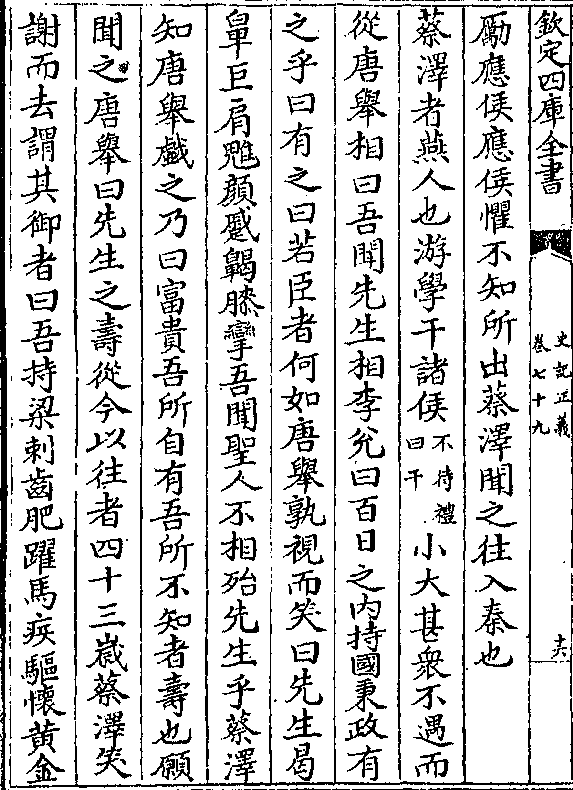 欽定四庫全書
史記正義
卷七十九
十六
勵應侯應侯懼不知所出蔡澤聞之往入秦也
蔡澤者燕人也游學干諸侯不待禮曰干小大甚衆不遇而
從唐舉相曰吾聞先生相李兊曰百日之内持國秉政有
之乎曰有之曰若臣者何如唐舉孰視而笑曰先生曷
鼻巨肩魋顔蹙齃膝攣吾聞聖人不相殆先生乎蔡澤
知唐舉戲之乃曰富貴吾所自有吾所不知者壽也願
聞之唐舉曰先生之壽從今以往者四十三嵗蔡澤笑
謝而去謂其御者曰吾持梁刺齒肥躍馬疾驅懷黄金